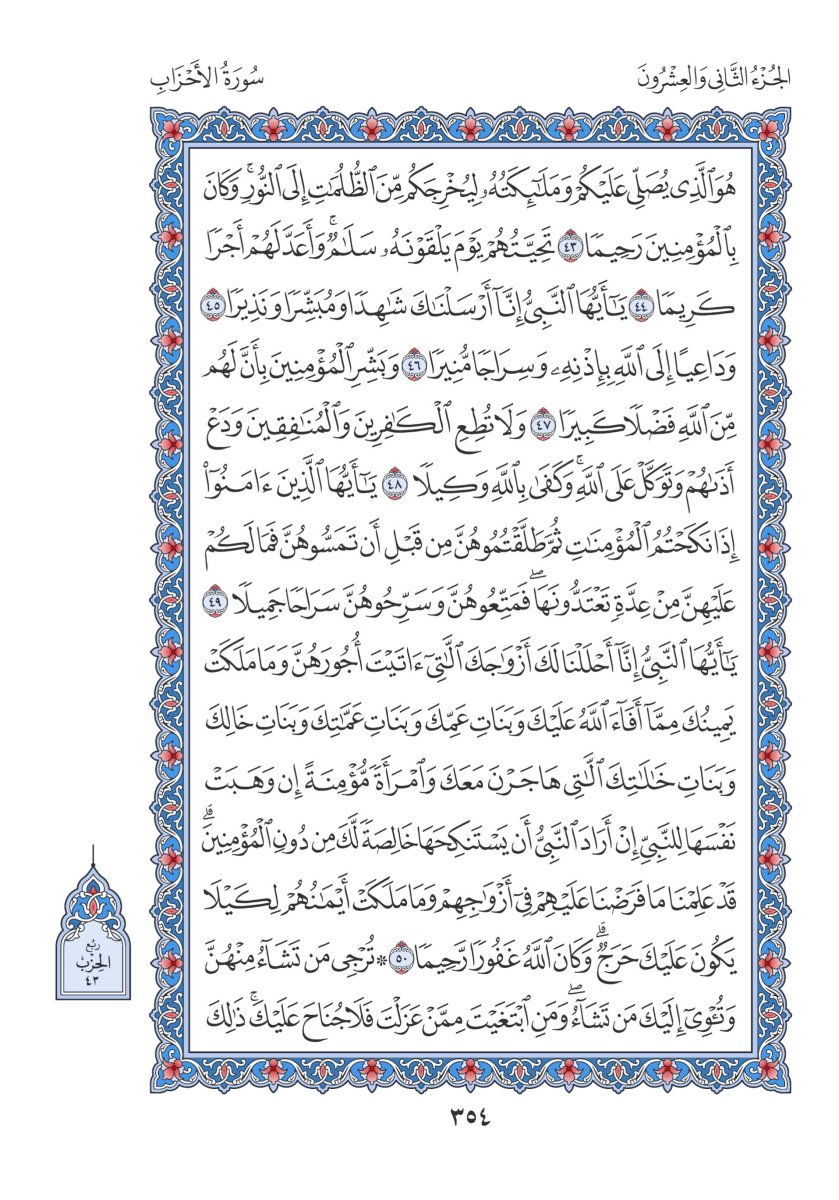 الجُزْءُ الثَّانِي وَالعِشْرُونَ
سُورَةُ الأَحْزَابِ
هُوَ ٱلَّذِي يُصَلِّي عَلَيۡكُمۡ وَمَلَٰٓئِكَتُهُۥ لِيُخۡرِجَكُم مِّنَ ٱلظُّلُمَٰتِ إِلَى ٱلنُّورِۚ وَكَانَ
بِٱلۡمُؤۡمِنِينَ رَحِيمٗا ٤٣ تَحِيَّتُهُمۡ يَوۡمَ يَلۡقَوۡنَهُۥ سَلَٰمٞۚ وَأَعَدَّ لَهُمۡ أَجۡرٗا
كَرِيمٗا ٤٤ يَٰٓأَيُّهَا ٱلنَّبِيُّ إِنَّآ أَرۡسَلۡنَٰكَ شَٰهِدٗا وَمُبَشِّرٗا وَنَذِيرٗا ٤٥
وَدَاعِيًا إِلَى ٱللَّهِ بِإِذۡنِهِۦ وَسِرَاجٗا مُّنِيرٗا ٤٦ وَبَشِّرِ ٱلۡمُؤۡمِنِينَ بِأَنَّ لَهُم
مِّنَ ٱللَّهِ فَضۡلٗا كَبِيرٗا ٤٧ وَلَا تُطِعِ ٱلۡكَٰفِرِينَ وَٱلۡمُنَٰفِقِينَ وَدَعۡ
أَذَىٰهُمۡ وَتَوَكَّلۡ عَلَى ٱللَّهِۚ وَكَفَىٰ بِٱللَّهِ وَكِيلٗا ٤٨ يَٰٓأَيُّهَا ٱلَّذِينَ ءَامَنُوٓاْ
إِذَا نَكَحۡتُمُ ٱلۡمُؤۡمِنَٰتِ ثُمَّ طَلَّقۡتُمُوهُنَّ مِن قَبۡلِ أَن تَمَسُّوهُنَّ فَمَا لَكُمۡ
عَلَيۡهِنَّ مِنۡ عِدَّةٖ تَعۡتَدُّونَهَاۖ فَمَتِّعُوهُنَّ وَسَرِّحُوهُنَّ سَرَاحٗا جَمِيلٗا ٤٩
يَٰٓأَيُّهَا ٱلنَّبِيُّ إِنَّآ أَحۡلَلۡنَا لَكَ أَزۡوَٰجَكَ ٱلَّٰتِيٓ ءَاتَيۡتَ أُجُورَهُنَّ وَمَا مَلَكَتۡ
يَمِينُكَ مِمَّآ أَفَآءَ ٱللَّهُ عَلَيۡكَ وَبَنَاتِ عَمِّكَ وَبَنَاتِ عَمَّٰتِكَ وَبَنَاتِ خَالِكَ
وَبَنَاتِ خَٰلَٰتِكَ ٱلَّٰتِي هَاجَرۡنَ مَعَكَ وَٱمۡرَأَةٗ مُّؤۡمِنَةً إِن وَهَبَتۡ
نَفۡسَهَا لِلنَّبِيِّ إِنۡ أَرَادَ ٱلنَّبِيُّ أَن يَسۡتَنكِحَهَا خَالِصَةٗ لَّكَ مِن دُونِ ٱلۡمُؤۡمِنِينَۗ
قَدۡ عَلِمۡنَا مَا فَرَضۡنَا عَلَيۡهِمۡ فِيٓ أَزۡوَٰجِهِمۡ وَمَا مَلَكَتۡ أَيۡمَٰنُهُمۡ لِكَيۡلَا
يَكُونَ عَلَيۡكَ حَرَجٞۗ وَكَانَ ٱللَّهُ غَفُورٗا رَّحِيمٗا ٥٠ ۞تُرۡجِي مَن تَشَآءُ مِنۡهُنَّ
وَتُـٔۡوِيٓ إِلَيۡكَ مَن تَشَآءُۖ وَمَنِ ٱبۡتَغَيۡتَ مِمَّنۡ عَزَلۡتَ فَلَا جُنَاحَ عَلَيۡكَۚ ذَٰلِكَ
رُبُعُ
الحِزْبِ
٤٣
٣٥٤